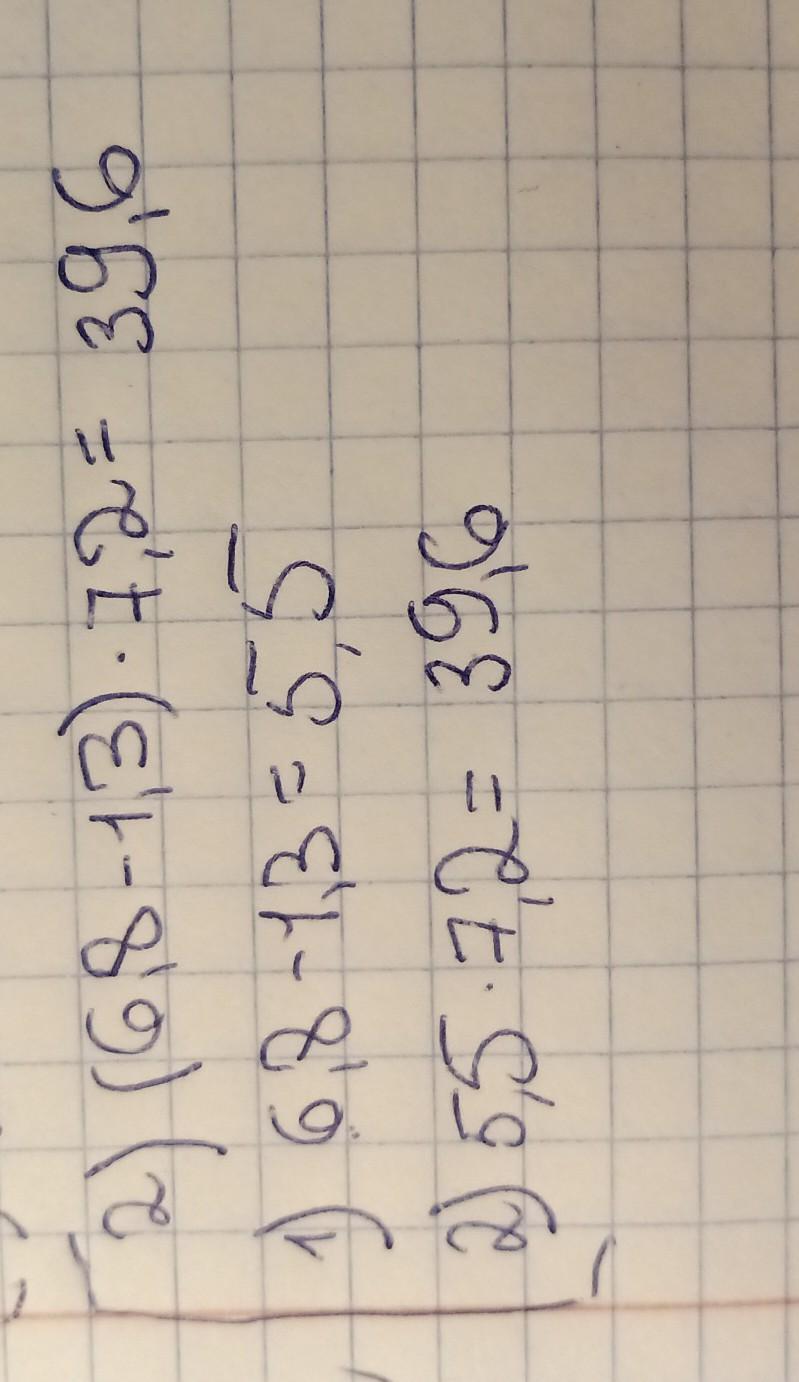 2) (6,8-1,3)·7,2= 39,6
1) 6,8-1,3=5,5
2) 5,5·7,2= 39,6